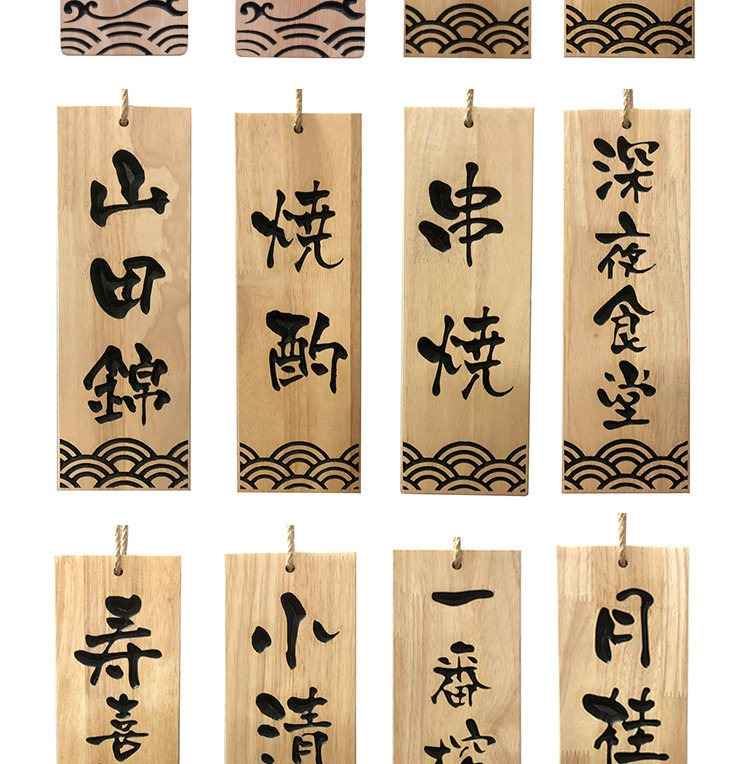 山田錦
焼酌
串焼
深夜食堂
寿喜
小清
一番
月桂